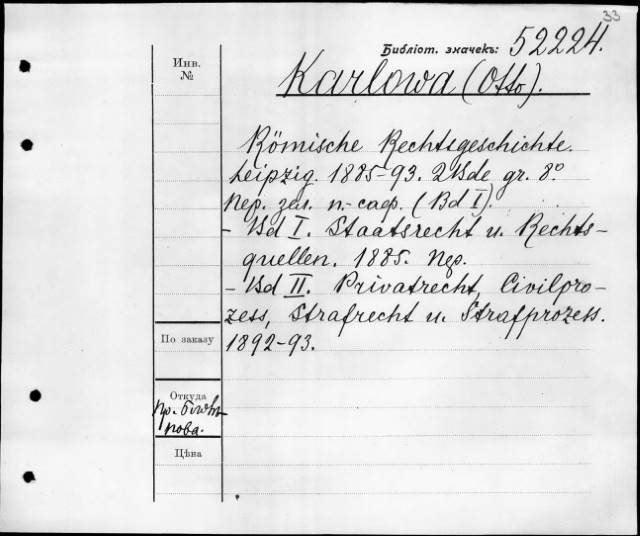 33
Библіот. значекъ: 52224.
Инв.
№
Karlowa (Otto).
Römische Rechtsgeschichte.
Leipzig. 1885-93. 2 Bde gr. 8°
Пер. зел. п.-саф. (Bd I).
- Bd I. Staatsrecht u. Rechts-
quellen. 1885.
- Bd II. Privatrecht, Civilpro-
zess, Strafrecht u. Strafprozess.
1892-93.
По заказу
Откуда
пр.
Цѣна